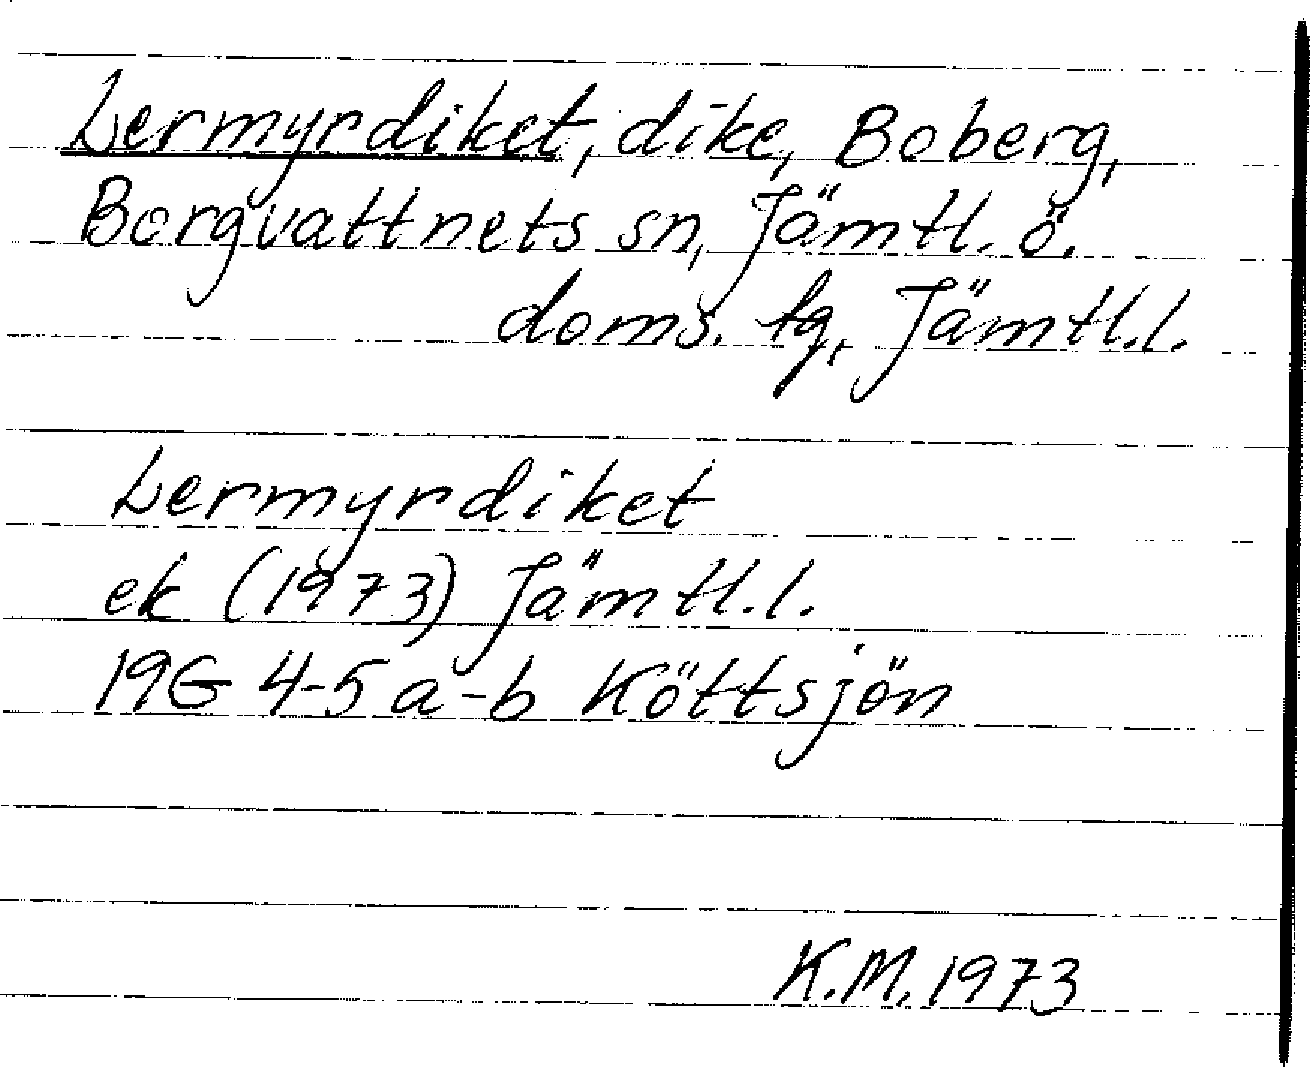 Lermyrdiket, dike, Boberg,
Borgvattnets sn, Jämtl. ö.
doms. tg, Jämtl.l.
Lermyrdiket
ek (1973) Jämtl.l.
19G 4-5 a-b Köttsjön
K.M. 1973